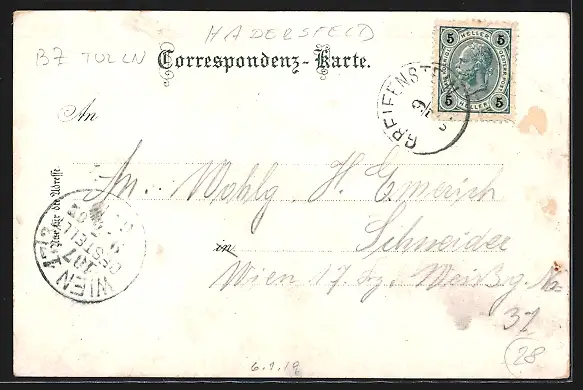 HADERSFELD
BZ TULLN
Correspondenz-Karte.
5 HELLER 5
5 HELLER 5
GREIFENST
An
Nur für die Adresse.
An: Wohlg. H. Emerich
in Schneider
Wien 17. Bz. Weißg. No
37
28
WIEN 17/1
107
BESTELLT
6.1.19